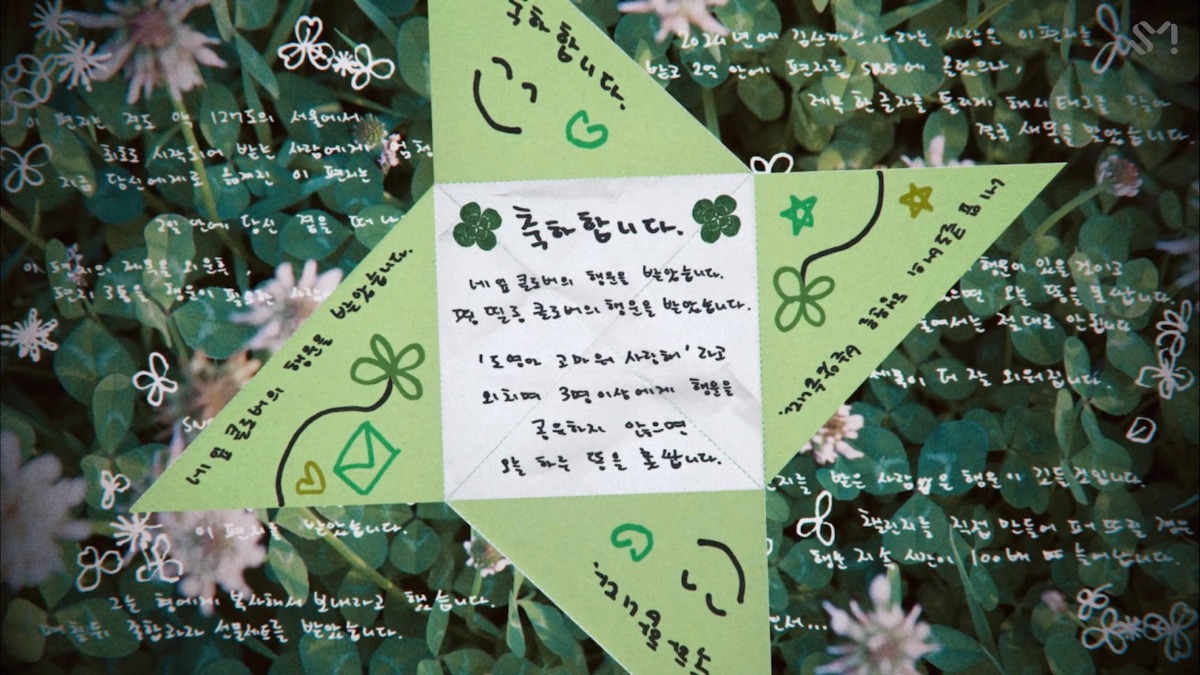 SM
축하합니다.
2024년에 사람은 이 편지를
받고 2일 안에 편지를 SNS에 올렸으나,
제목 한 글자를 틀리게 해시태그를 달아
결국 새똥을 맞았습니다.
이 편지는 경도 약 127도의 서울에서
최초로 시작되어 받는 사람에게
지금 당신에게로 옮겨진 이 편지는
2일 안에 당신 곁을 떠나
이 편지의 제목을 외운 후,
편지 3통을 행운이 필요한
네 잎 클로버의 행운을 받았습니다.
축하합니다.
네 잎 클로버의 행운을 받았습니다.
클로버의 행운을 받았습니다.
'도영아 고마워 사랑해' 라고
외치며 3명 이상에게 행운을
공유하지 않으면
오늘 하루 똥을 못 쌉니다.
네 잎 클로버의 행운을 받았습니다.
행운이 있을 것이고
오늘 똥을 못 쌉니다.
절대로 안 됩니다
제목이 더 잘 외워집니다.
받은 사람은 행운이 깃든 것입니다.
챌린지를 직접 만들어 퍼뜨릴 경우
행운 지속 시간이 100배 더 늘어납니다.
이 편지를 받았습니다.
그는 형에게 복사해서 보내라고 했습니다.
며칠 뒤, 종합과자 선물세트를 받았습니다.
축하합니다.